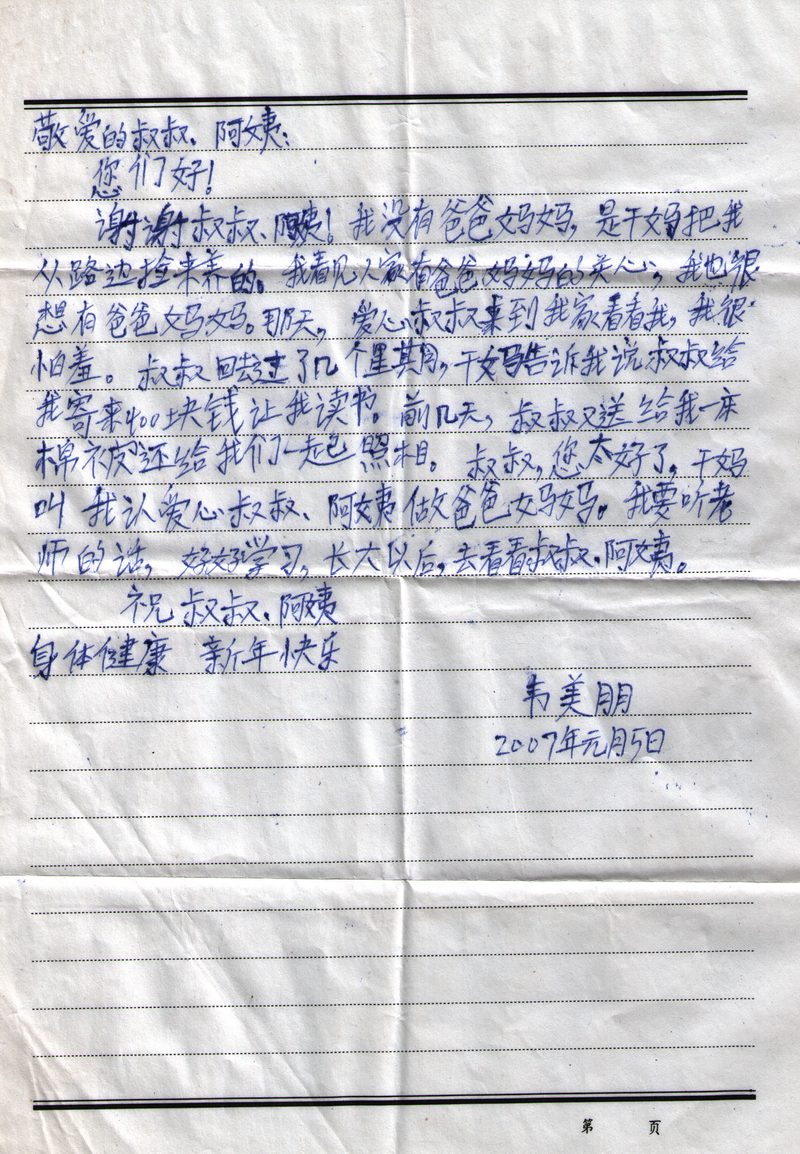 敬爱的叔叔、阿姨：
您们好！
谢谢叔叔、阿姨！我没有爸爸妈妈，是干妈把我
从路边捡来养的。我看见人家有爸爸妈妈的关心，我也很
想有爸爸妈妈。那天，爱心叔叔来到我家看看我，我很
怕羞。叔叔回去过了几个星其月，干妈告诉我说叔叔给
我寄来400块钱让我读书。前几天，叔叔又送给我一床
棉被还给我们一起照相。叔叔，您太好了，干妈
叫我认爱心叔叔、阿姨做爸爸妈妈。我要听老
师的话，好好学习，长大以后，去看看叔叔、阿姨。
祝叔叔、阿姨
身体健康 新年快乐
韦美朋
2007年元月5日
第 页